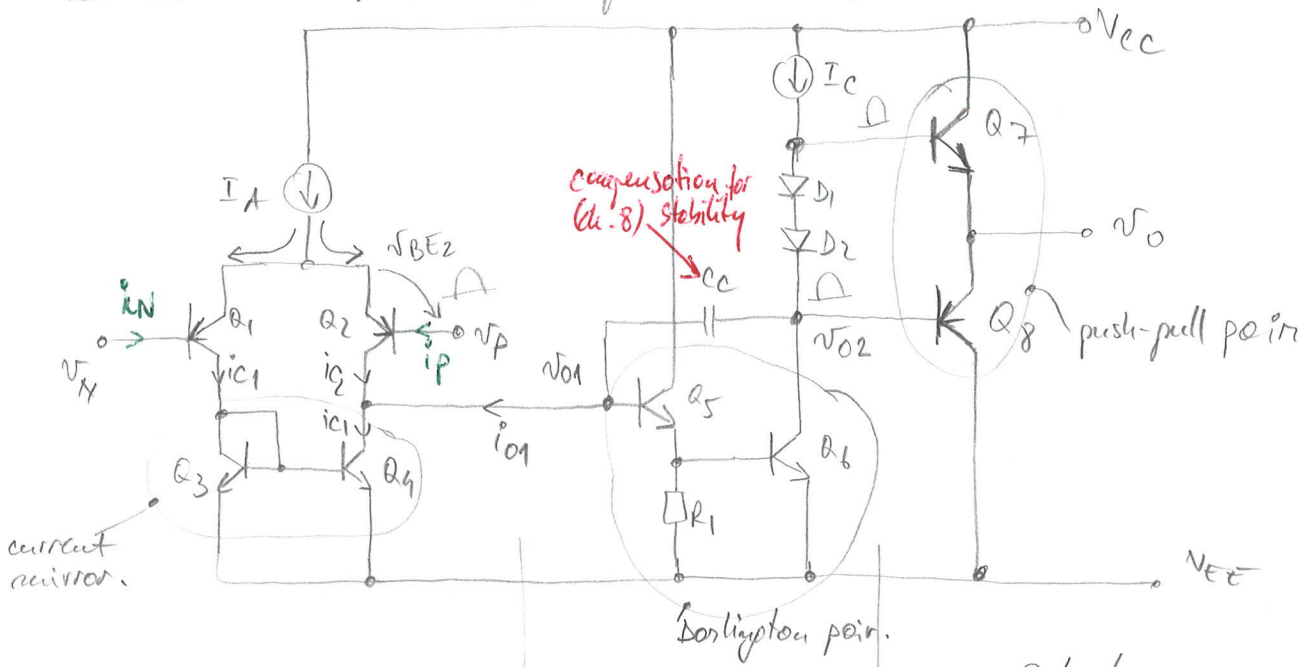 VCC
IC
Q7
IA
compensation for
(ch. 8) stability
D1
D2
vBE2
CC
vO
iN
Q1
Q2
vP
iP
vN
iC1
iC2
vO1
vO2
Q8
push-pull pair
Q5
iC1
iO1
Q3
Q4
Q6
R1
current
mirror.
VEE
Darlington pair.